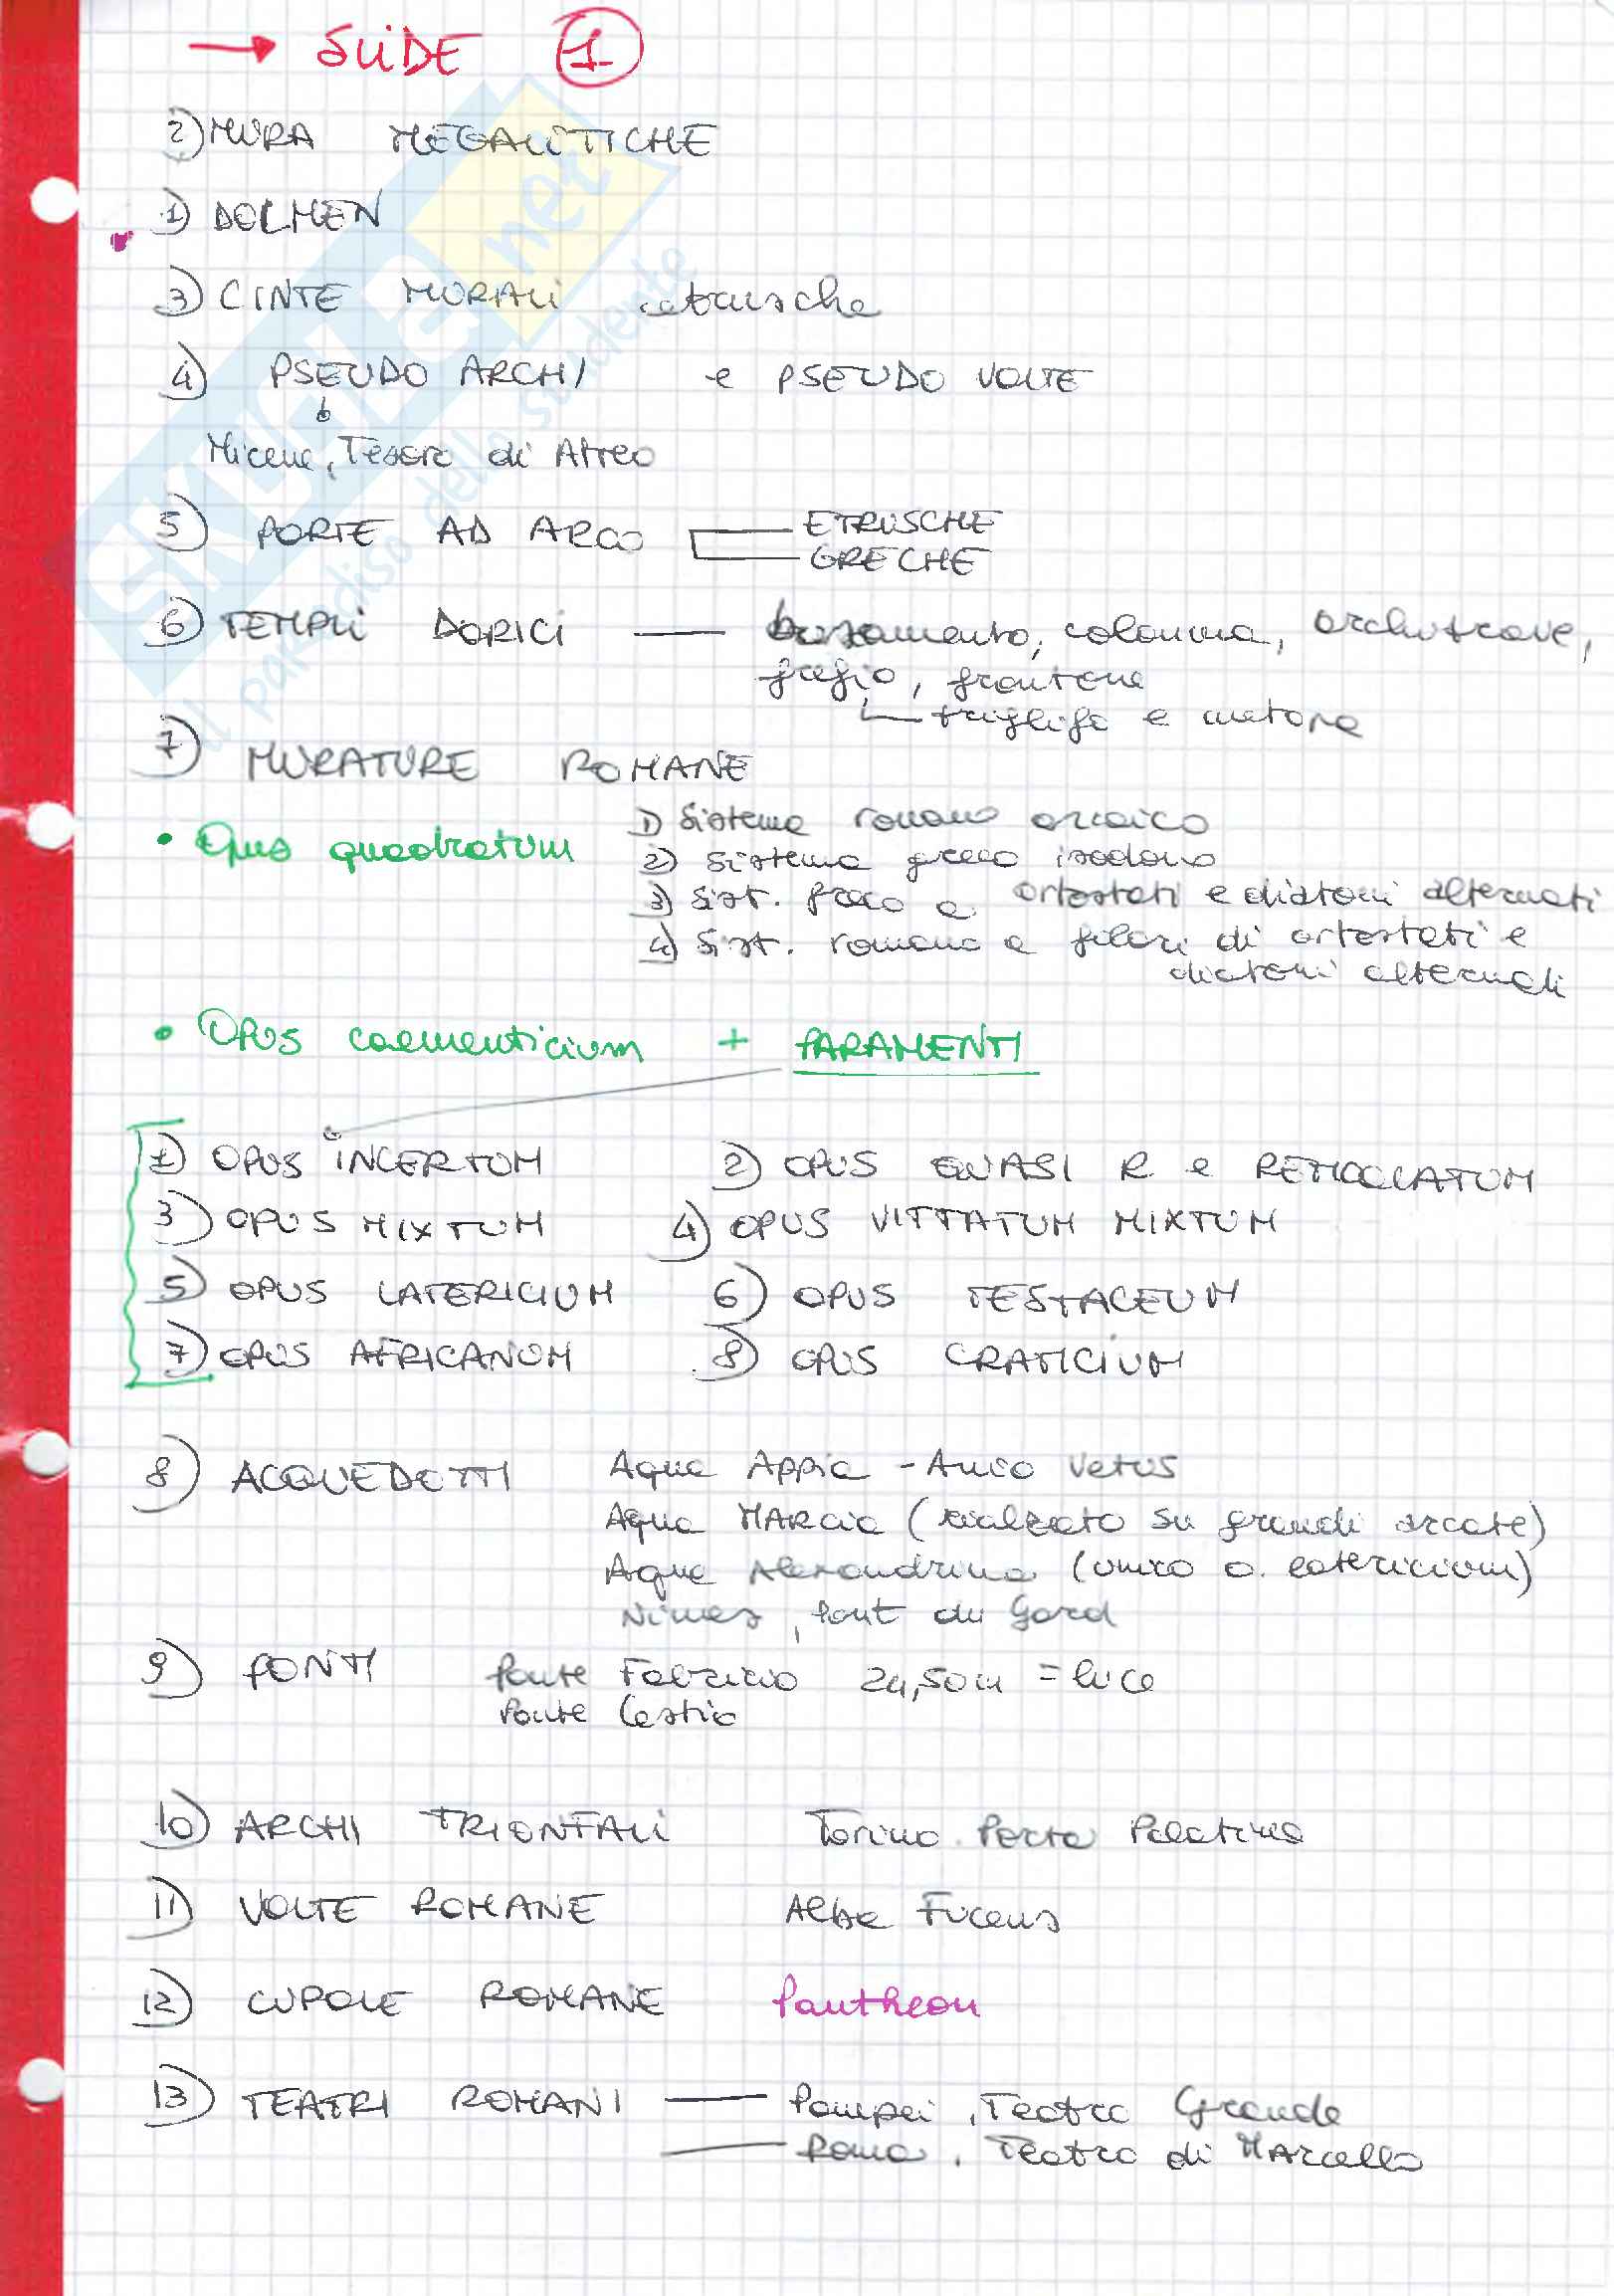 → SLIDE 1
2) MURA MEGALITICHE
1) DOLMEN
3) CINTE MURALI etrusche
4) PSEUDO ARCHI e PSEUDO VOLTE
Micene, Tesoro di Atreo
5) PORTE AD ARCO ETRUSCHE
GRECHE
6) TEMPLI DORICI — basamento, colonna, architrave,
fregio, frontone
triglifo e metope
7) MURATURE ROMANE
• Opus quadratum 1) Sistema romano arcaico
2) Sistema greco isodomo
3) Sist. greco a ortostati e diatoni alternati
4) Sist. romano a filari di ortostati e
diatoni alternati
• Opus caementicium + PARAMENTI
1) OPUS INCERTUM 2) OPUS QUASI R e RETICOLATUM
3) OPUS MIXTUM 4) OPUS VITTATUM MIXTUM
5) OPUS LATERICIUM 6) OPUS TESTACEUM
7) OPUS AFRICANUM 8) OPUS CRATICIUM
8) ACQUEDOTTI Aqua Appia - Anio Vetus
Aqua MARcia (rialzato su grandi arcate)
Aqua Alexandrina (unico o. latericium)
Nimes, Pont du Gard
9) PONTI Ponte Fabricio 24,50m = luce
Ponte Cestio
10) ARCHI TRIONFALI Torino Porta Palatina
11) VOLTE ROMANE Alba Fucens
12) CUPOLE ROMANE Pantheon
13) TEATRI ROMANI — Pompei, Teatro Grande
— Roma, Teatro di MArcello
SKUOLA.net
il paradiso dello studente